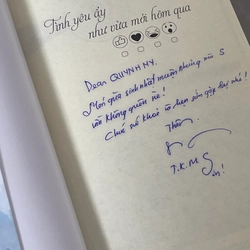 Tình yêu ấy
như vừa mới hôm qua
Dear QUỲNH MY,
Món quà sinh nhật muộn nhưng mà S
vẫn không quên nè!
Chúc sức khoẻ và hẹn sớm gặp lại nhé!
Thân,
T.K.M